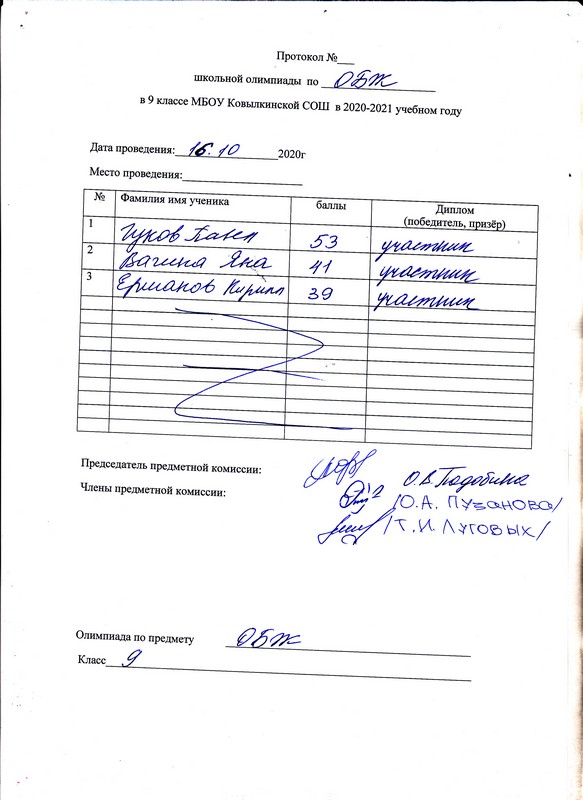 Протокол №___
школьной олимпиады по ОБЖ
в 9 классе МБОУ Ковылкинской СОШ в 2020-2021 учебном году
Дата проведения: 16.10 2020г
Место проведения:
№ Фамилия имя ученика баллы Диплом
(победитель, призёр)
1 Гуков Павел 53 участник
2 Вагина Яна 41 участник
3 Ермаков Кирилл 39 участник
Председатель предметной комиссии: О.В. Подобина
Члены предметной комиссии: /О.А. Пузанова/
/Т.И. Луговых/
Олимпиада по предмету ОБЖ
Класс 9